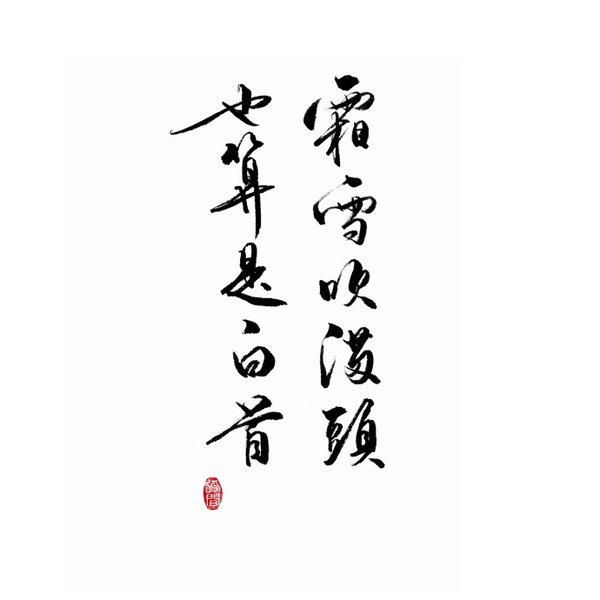 霜雪吹滿頭
也算是白首